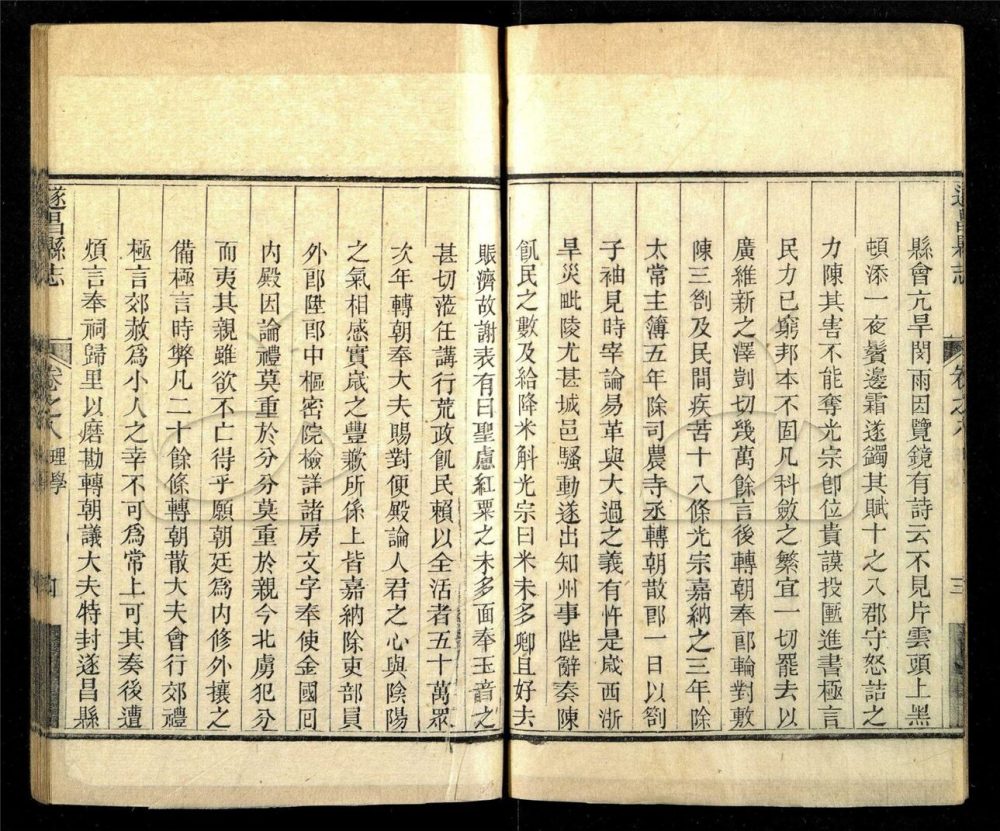 遂昌縣志
卷之八
三
縣會亢旱閔雨因覽鏡有詩云不見片雲頭上黑
頓添一夜鬢邊霜遂蠲其賦十之八郡守怒詰之
力陳其害不能奪光宗卽位貴謨投匭進書極言
民力已窮邦本不固凡科斂之繁宜一切罷去以
廣維新之澤剴切幾萬餘言後轉朝奉郎輪對敷
陳三劄及民間疾苦十八條光宗嘉納之三年除
太常主簿五年除司農寺丞轉朝散郎一日以劄
子袖見時宰論易革與大過之義有忤是歲西浙
旱災毗陵尤甚城邑騷動遂出知州事陛辭奏陳
飢民之數及給降米斛光宗曰米未多卿且好去
賬濟故謝表有曰聖慮紅粟之未多面奉玉音之
甚切蒞任講行荒政飢民賴以全活者五十萬眾
次年轉朝奉大夫賜對便殿論人君之心與陰陽
之氣相感實歲之豐歉所係上皆嘉納除吏部員
外郎陞郎中樞密院檢詳諸房文字奉使金國囘
內殿因論禮莫重於分分莫重於親今北虜犯分
而夷其親雖欲不亡得乎願朝廷為內修外攘之
備極言時弊凡二十餘條轉朝散大夫會行郊禮
極言郊赦為小人之幸不可為常上可其奏後遭
煩言奉祠歸里以磨勘轉朝議大夫特封遂昌縣
遂昌縣志
卷之八
理學